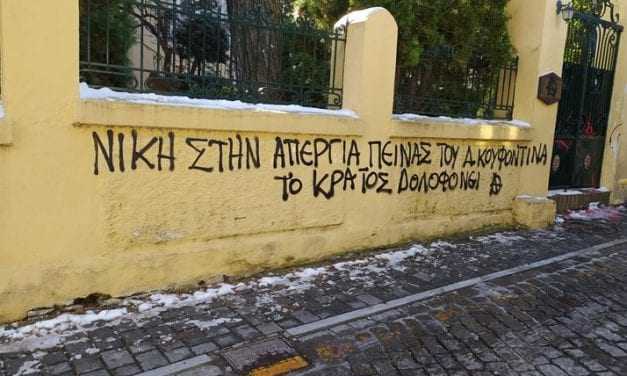 ΝΙΚΗ ΣΤΗΝ ΑΠΕΡΓΙΑ ΠΕΙΝΑΣ ΤΟΥ Δ. ΚΟΥΦΟΝΤΙΝΑ
ΤΟ ΚΡΑΤΟΣ ΔΟΛΟΦΟΝΕΙ Ⓐ